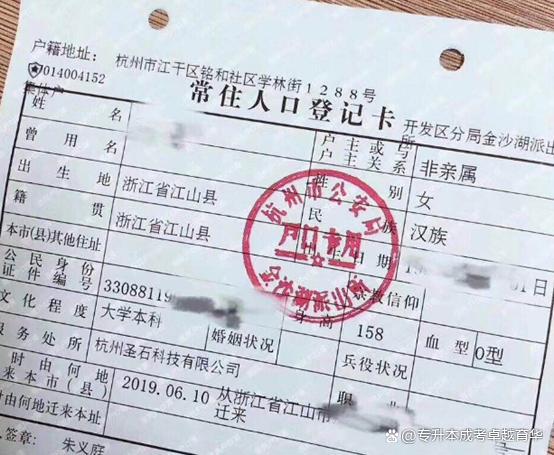 户籍地址: 杭州市江干区铭和社区学林街1288号
014004152
集体户
常住人口登记卡 开发区分局金沙湖派出
姓名 户主或与户主关系 非亲属
曾用名 性别 女
出生地 浙江省江山县 民族 汉族
籍贯 浙江省江山县 出生日期 1 01日
本市(县)其他住址 宗教信仰
公民身份证件编号 33088119 身高 158 血型 O型
文化程度 大学本科 婚姻状况 兵役状况
服务处所 杭州圣石科技有限公司 职业
时由何地来本市(县) 2019.06.10 从浙江省江山市 迁来
时由何地迁来本址
人签章: 朱义庭
杭州市公安局
户口专用
@专升本成考卓越育华